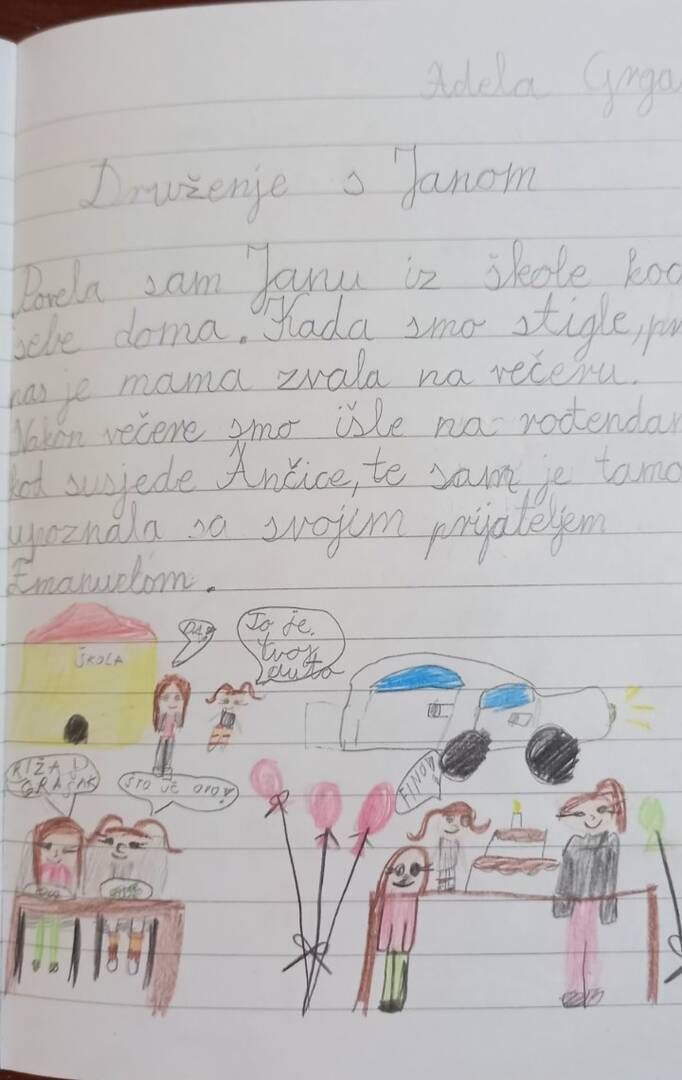 Adela Grga
Druženje s Janom
Povela sam Janu iz škole kod
sebe doma. Kada smo stigle, pr
nas je mama zvala na večeru.
Nakon večere smo išle na rođendan
kod susjede Ančice, te sam je tamo
upoznala sa svojim prijateljem
Emanuelom.
ŠKOLA
DA?
To je
tvoj
auto
RIŽA I
GRAŠAK
ŠTO JE OVO?
FINO!